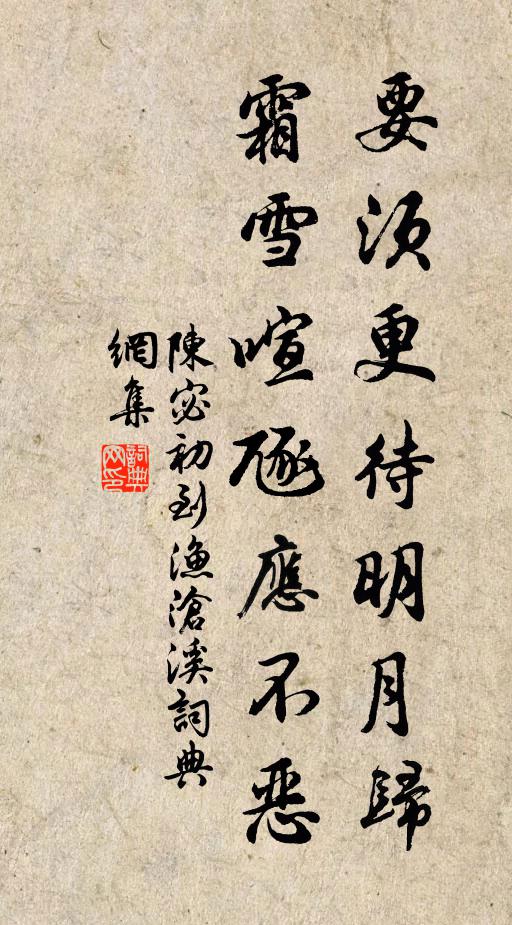 要須更待明月歸
霜雪喧豗應不惡
陳宓初到漁滄溪詞典
網集
詞典
网印